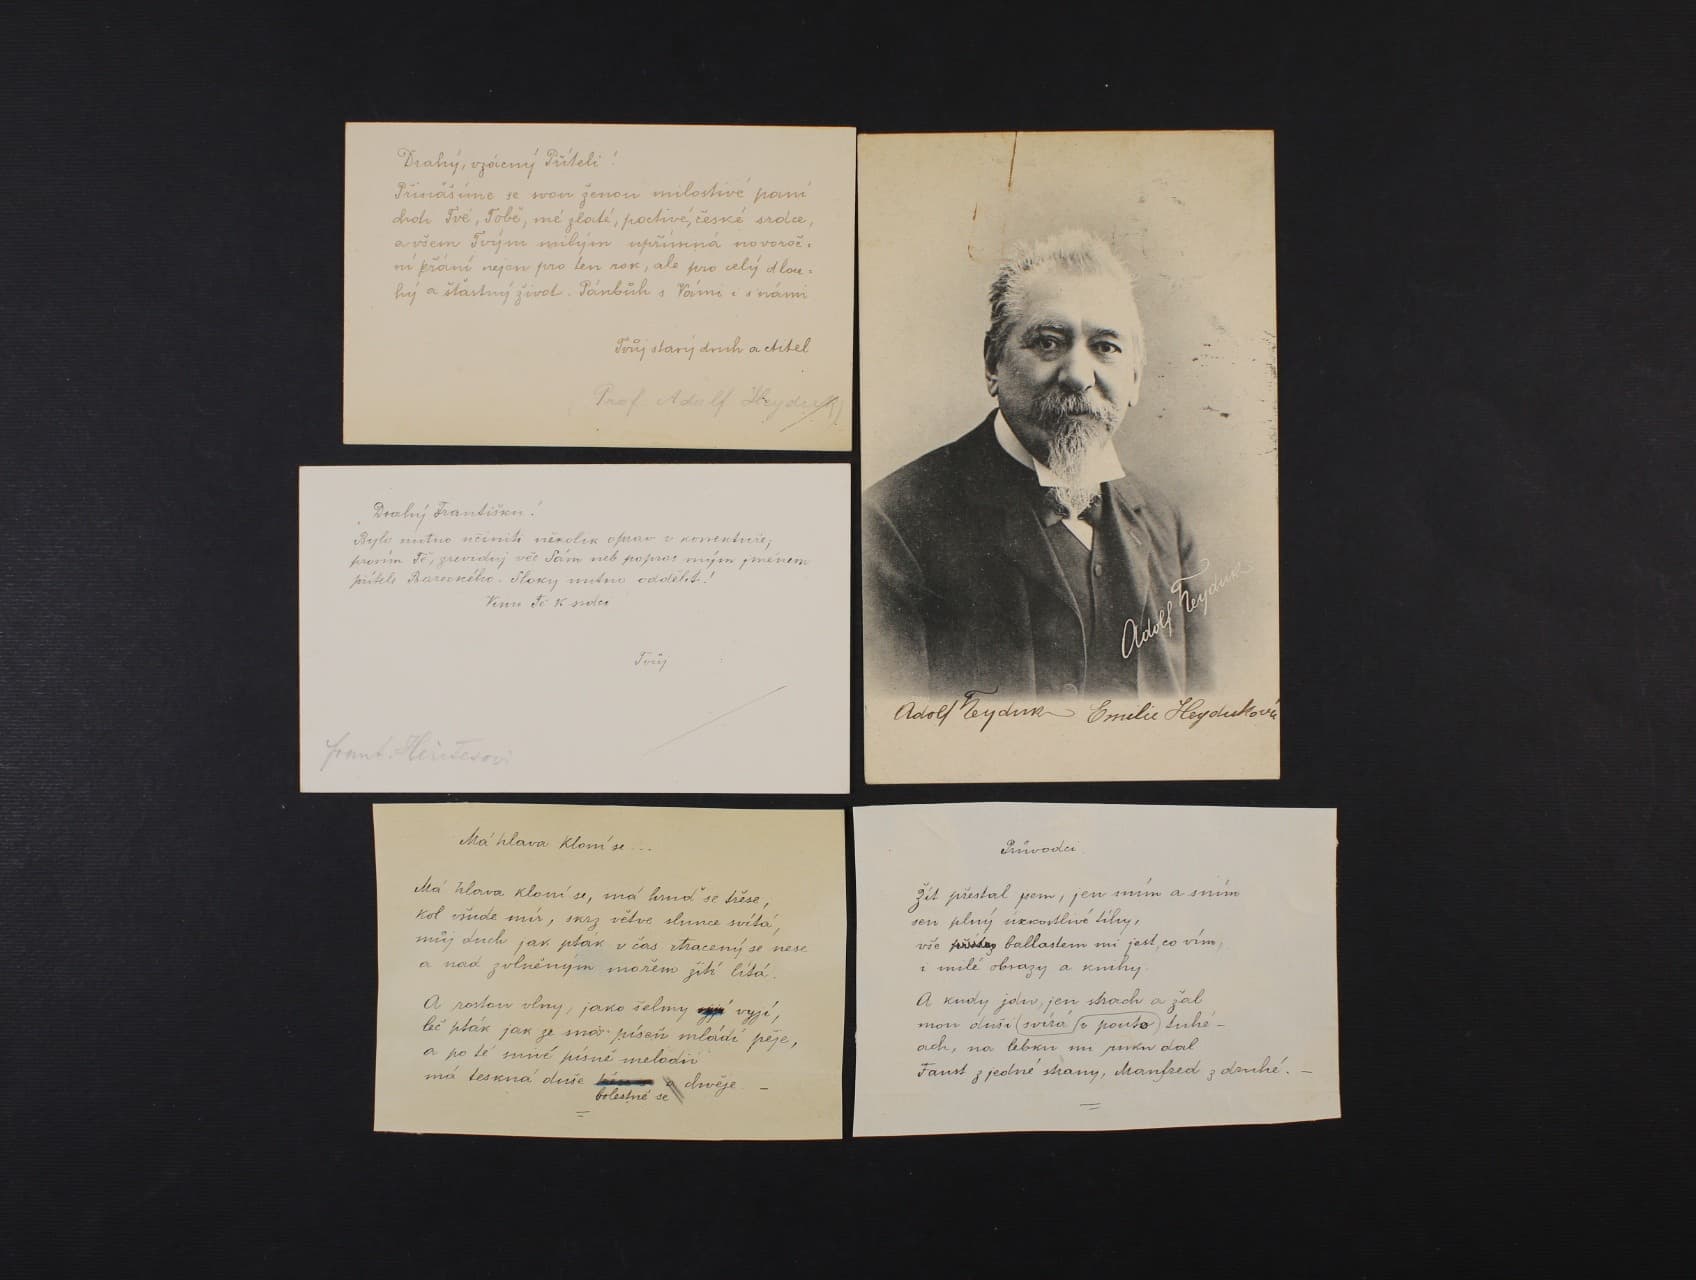 Drahý, vzácný Příteli!
Přinášíme se svou ženou milostivé paní
choti Tvé, Tobě, mé zlaté, poctivé, české srdce,
a všem Tvým milým upřímná novoroč-
ní přání nejen pro ten rok, ale pro celý dlou-
hý a šťastný život. Pánbůh s Vámi i s námi
Tvůj starý druh a ctitel
(Prof. Adolf Heyduk)
Drahý Františku!
Bylo nutno učiniti několik oprav v korektuře;
prosím Tě, zreviduj vše Sám neb popros mým jménem
přítele Bareckého. Sloky nutno odděliti!
Vinu Tě k srdci
Tvůj
Frant. Heritesovi
Adolf Heyduk
Adolf Heyduk Emilie Heyduková
Má hlava kloní se...
Má hlava kloní se, má hruď se třese,
kol všude mír, skrz větve slunce svítá,
můj duch jak pták v čas ztracený se nese
a nad zvlněným mořem žití lítá.
A rostou vlny, jako šelmy vyjí,
leč pták jak ze snů píseň mládí pěje,
a po té snivé písně melodii
má teskná duše a chvěje –
bolestně se
Průvodci.
Žít přestal jsem, jen sním a sním
sen plný úzkostlivé tíhy,
vše ballastem mi jest, co vím,
i milé obrazy a knihy.
A kudy jdu, jen strach a žal
mou duši (svírá (v pouto) tuhé –
ach, na lebku mi ruku dal
Faust z jedné strany, Manfred z druhé. –